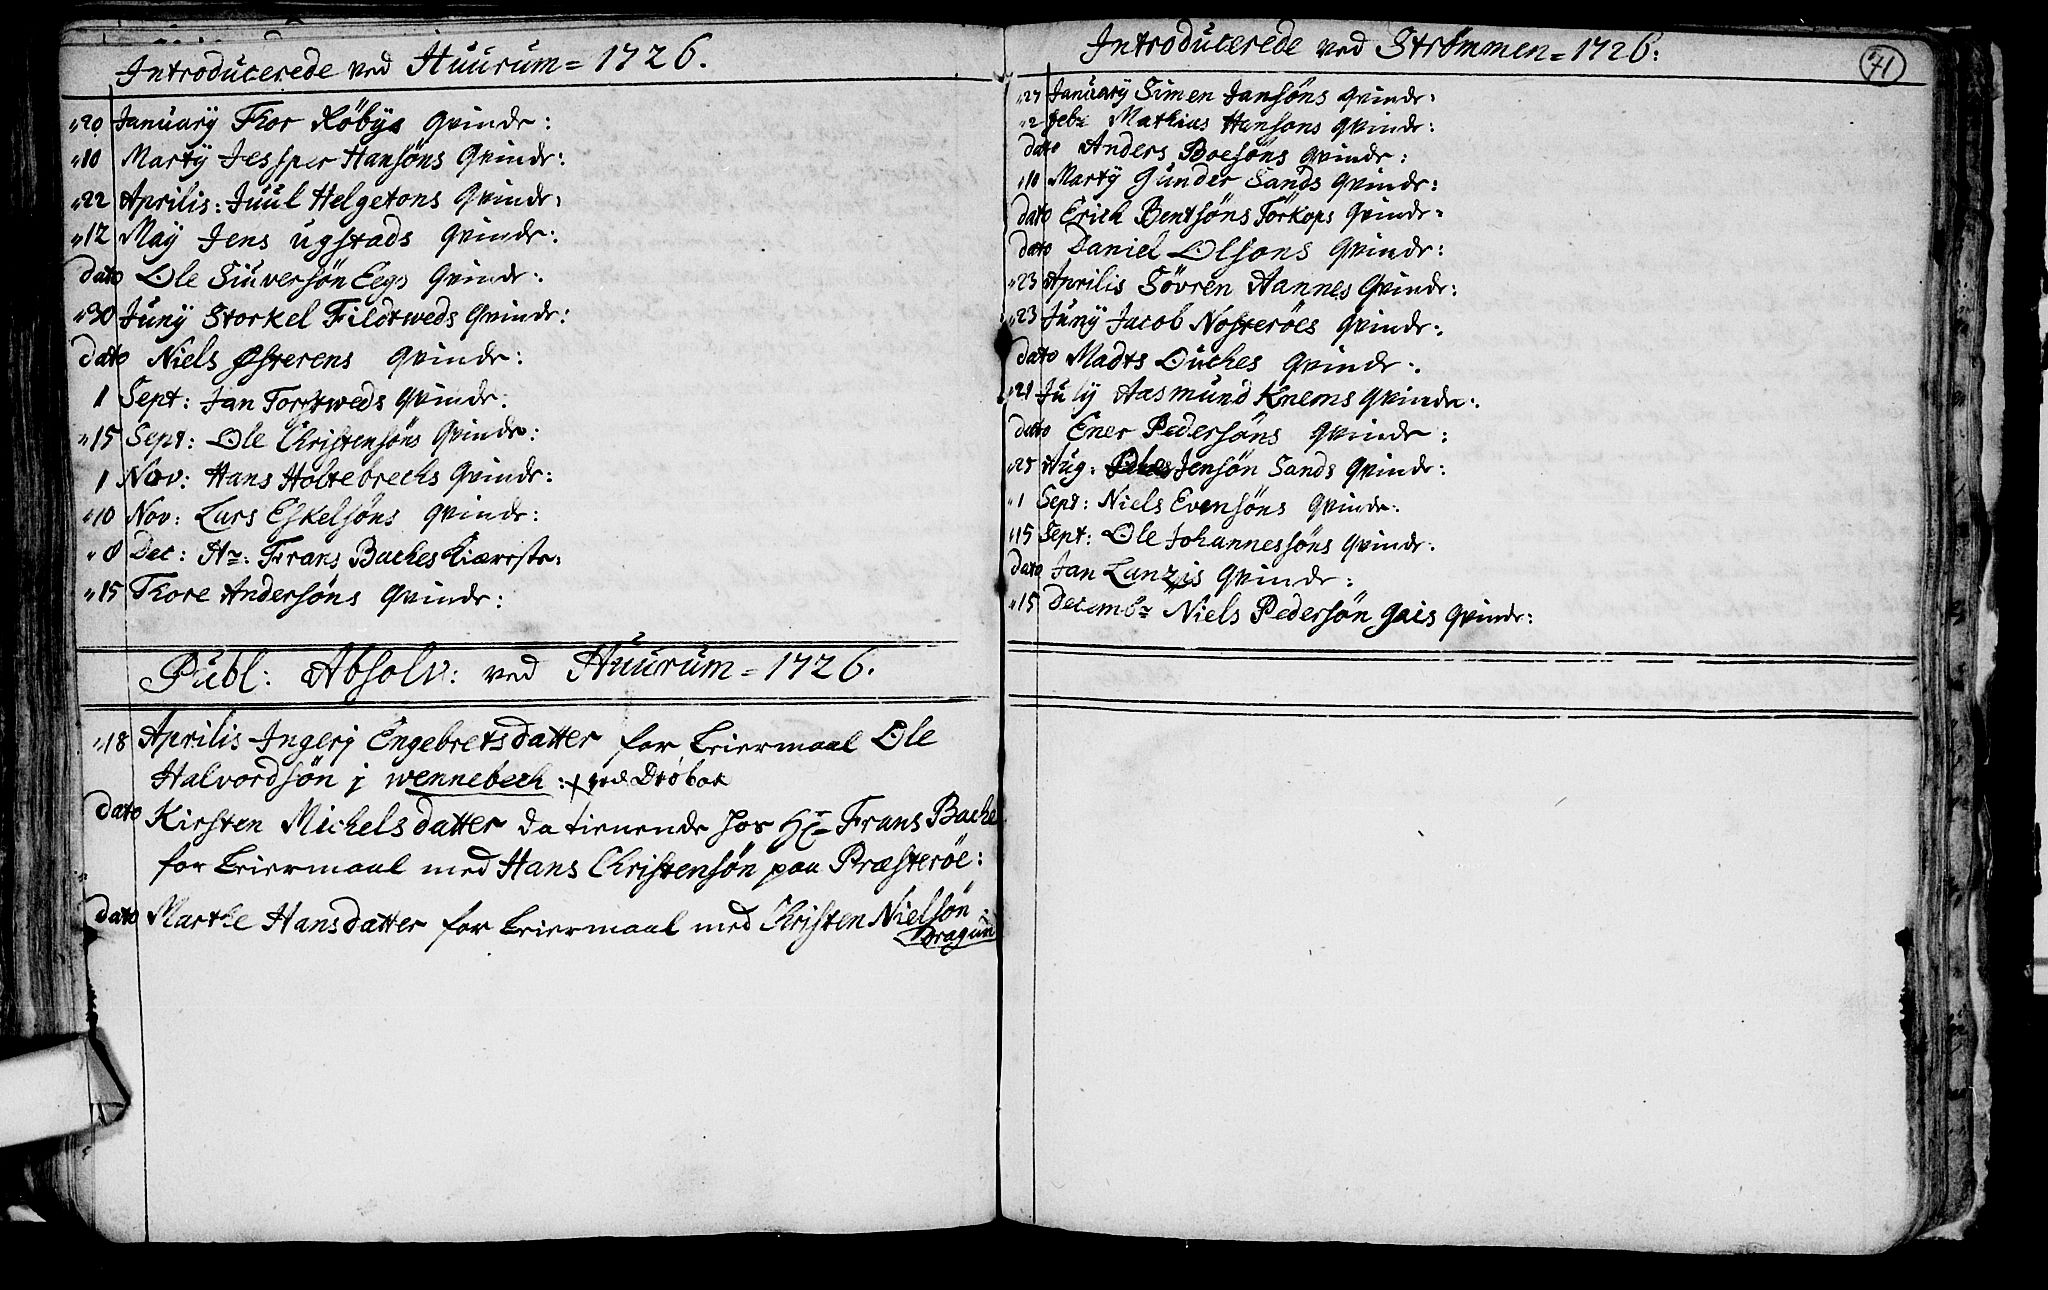 Introducerede ved Huurum = 1726.
20 January Thor Röbÿs Qvinde:
10 Martÿ Jessper Hansöns Qvinde:
22 Aprilis: Juul Helgetons Qvinde:
12 Maÿ Jens Ugstads Qvinde:
dato Ole Siuversön Eegs Qvinde:
30 Junÿ Storkel Fildtweds Qvinde:
dato Niels Østerens Qvinde:
1 Sept: Jan Tofftweds Qvinde:
15 Sept: Ole Christensöns Qvinde:
1 Nov: Hans Holtebrechs Qvinde:
10 Nov: Lars Eskelsöns Qvinde:
8 Dec: Hr: Frans Baches Kiæreste:
15 Thore Andersöns Qvinde:
Publ: Absolv: ved Huurum = 1726.
18 Aprilis Ingerj Engebretsdatter for Leiermaal Ole
Halvordsön j wennebech: ved Dröbak
dato Kirsten Michelsdatter da tienende hos Hr Frans Bache
for Leiermaal med Hans Christensön paa Præsteröe:
dato Marthe Hansdatter for Leiermaal med Christen Nielsön
Dragun
71
Introducerede ved Strømmen = 1726:
27 January Simen Jansöns Qvinde:
2 Febr Mathias Hansons Qvinde:
dato Anders Boesöns Qvinde:
10 Martÿ Gunder Sands Qvinde:
dato Erich Bentsöns Törkops Qvinde:
dato Daniel Olsons Qvinde:
23 Aprilis Sövren Aannes Qvinde:
23 Junÿ Jacob Nosteröes Qvinde:
dato Madts Ouches Qvinde:
21 Julÿ Aasmund Knems Qvinde:
dato Ener Pedersöns Qvinde:
25 Aug: Jensön Sands Qvinde:
1 Sept: Niels Evensöns Qvinde:
15 Sept: Ole Johannessöns Qvinde:
dato Jan Lanzis Qvinde:
15 Decembr Niels Pedersön Gais Qvinde: